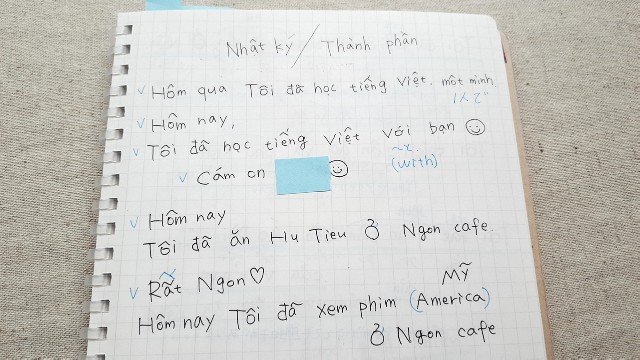 Nhật ký / Thành phần
Hôm qua Tôi đã học tiếng Việt. một mình
1人で
Hôm nay,
Tôi đã học tiếng Việt với bạn
Cám on
~と
(with)
Hôm nay
Tôi đã ăn Hu Tieu Ở Ngon cafe.
Rất Ngon♡
Mỹ
Hôm nay Tôi đã xem phim (America)
Ở Ngon cafe